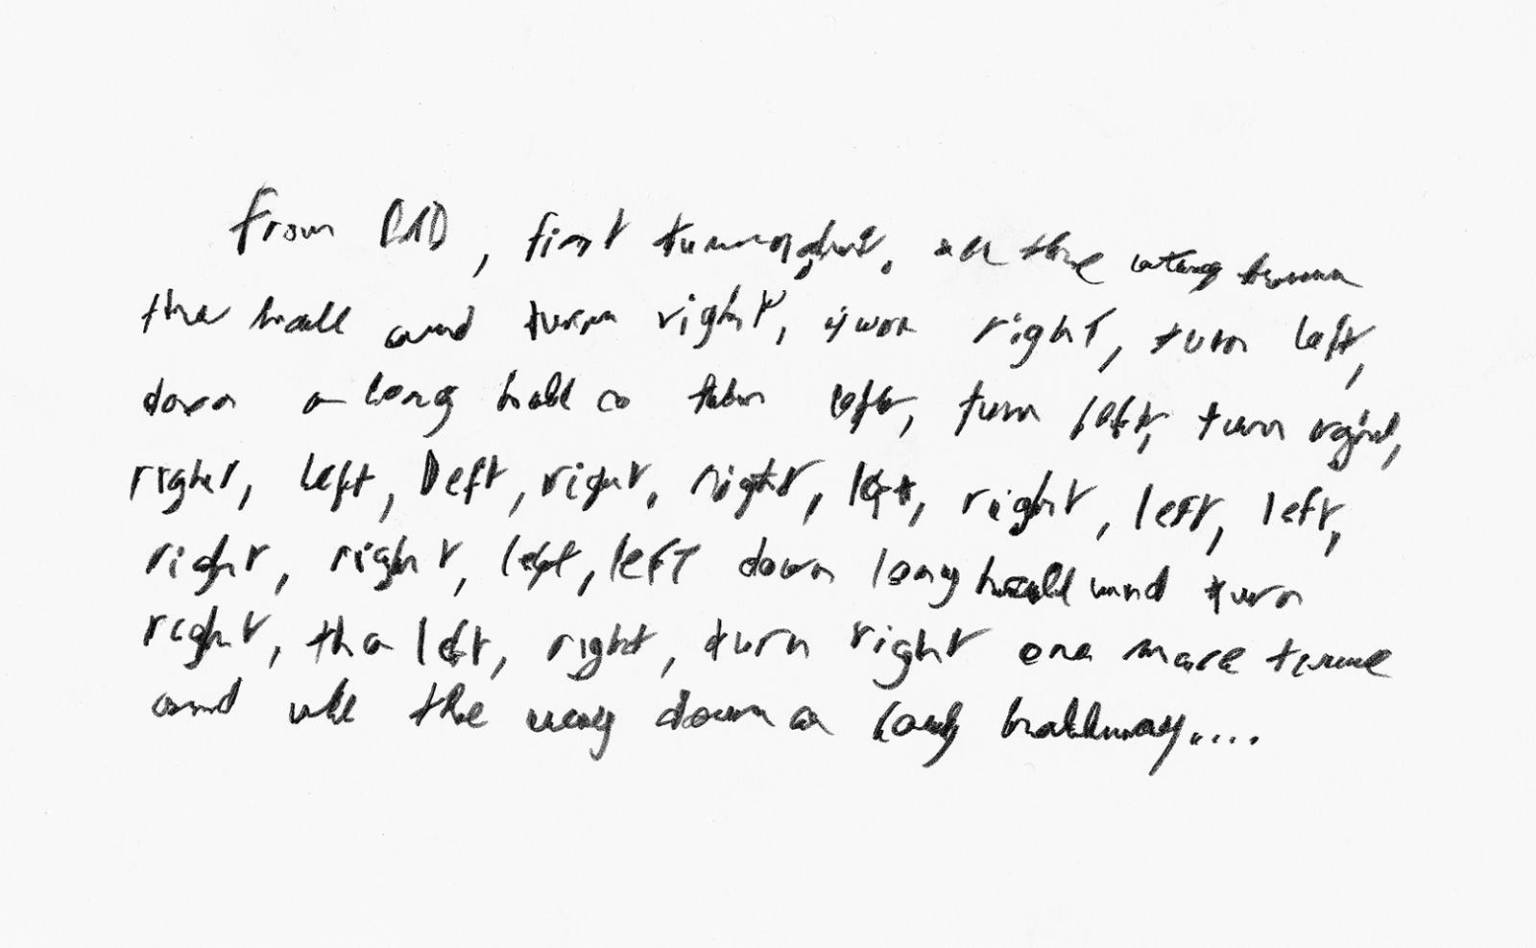 From DAD, first turn right, all the way down
the hall and turn right, turn right, turn left,
down a long hall a turn left, turn left, turn right,
right, left, left, right, right, left, right, left, left,
right, right, left, left down long hall and turn
right, the left, right, turn right one more time
and all the way down a long hallway....